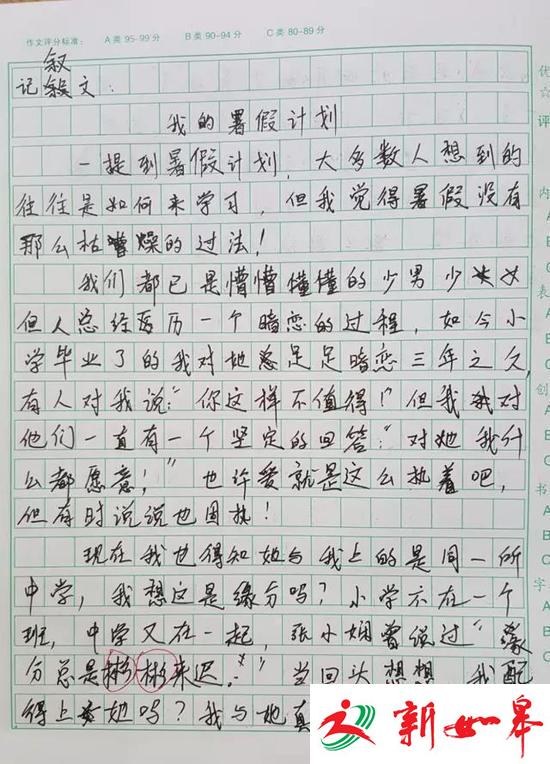 作文评分标准： A 类 95-99 分 B 类 90-94 分 C 类 80-89 分
叙
记文：
我的暑假计划
一提到暑假计划，大多数人想到的
往往是如何来学习，但我觉得暑假没有
那么枯燥的过法！
我们都已是懵懵懂懂的少男少女
但人总经历一个暗恋的过程，如今小
学毕业了的我对她足足暗恋三年之久
有人对我说：“你这样不值得！”但我对
他们一直有一个坚定的回答：“对她我什
么都愿意！”也许爱就是这么执着吧，
但有时说说也固执！
现在我也得知她与我上的是同一所
中学，我想这是缘分吗？小学不在一个
班，中学又在一起，张小娴曾说过“缘
分总是彬彬来迟。”当回头想想，我配
得上她吗？我与她真
优
☆
评
内
A
B
C
表
A
B
C
创
A
B
C
书
A
B
C
字
A
B
新如皋